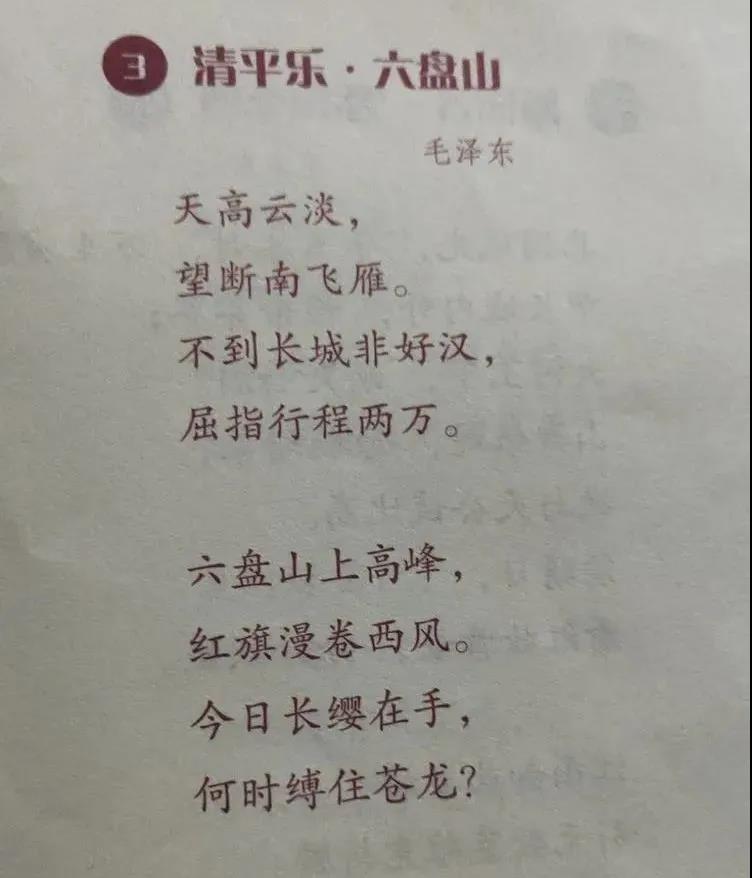 3 清平乐·六盘山
毛泽东
天高云淡，
望断南飞雁。
不到长城非好汉，
屈指行程两万。
六盘山上高峰，
红旗漫卷西风。
今日长缨在手，
何时缚住苍龙？